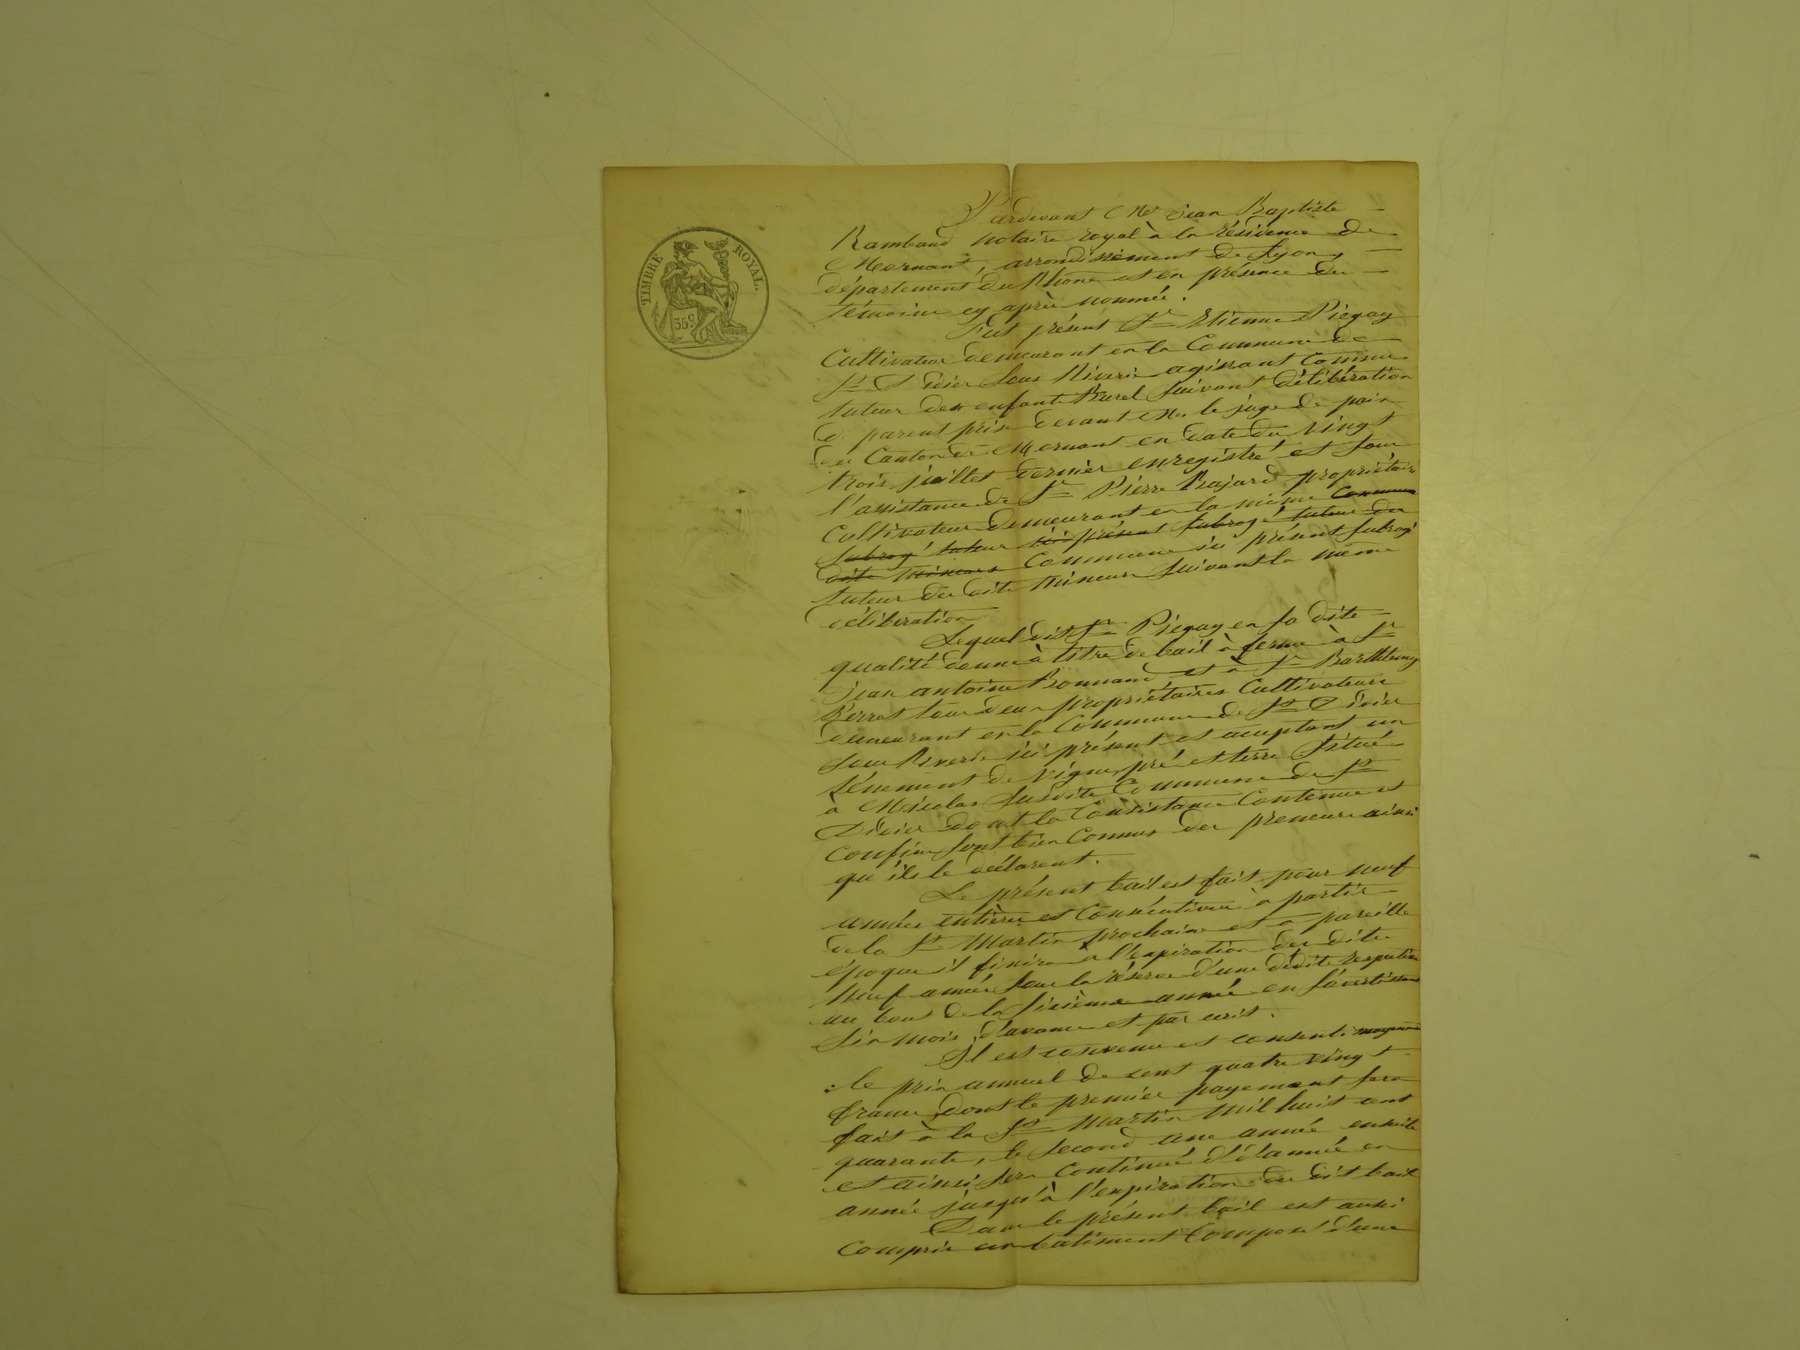 TIMBRE ROYAL.
35 c.
Pardevant Me Jean Baptiste
Rambaud notaire royal à la résidence de
Mornant, arrondissement de Lyon,
département du Rhône et en présence des
témoins cy après nommés.
Fut présent Sr Etienne Piegay
Cultivateur demeurant en la Commune de
St Didier Sous Riverie agissant Comme
tuteur des enfants Burel Suivant délibération
de parent prise devant Mr le juge de paix
du Canton de Mornant en date du vingt
trois juillet dernier enregistré et sous
l'assistance de Sr Pierre Bajard propriétaire
Cultivateur demeurant en la même Commune
Subrogé tuteur ici présent subrogé tuteur des
dits Mineurs Commune ici présent Subrogé
tuteur des dits Mineurs Suivant la même
délibération
Lequel dit Sr Piegay en sa dite
qualité donne à titre de bail à ferme à Sr
Jean antoine Bonnand et à Sr Barthlemy
tous deux propriétaires Cultivateurs
demeurant en la Commune de St Didier
sous Riverie ici présent et acceptant un
ténement de vigne, pré et terre Situé
à Susdite Commune de St
Didier dont la Consistance Contenue et
confins sont bien Connus des preneurs ainsi
qu'ils le déclarent.
Le présent bail est fait pour neuf
années entières et Consécutives à partir
de la St Martin prochaine et à pareille
époque il finira à l'expiration des dites
Neuf années sous la réserve d'une dédite respective
au bout de la Sixième année en s'avertissant
Six mois d'avance et par écrit.
Il est convenu et consenti moyennant
le prix annuel de cent quatre vingt
francs dont le premier payement sera
fait à la St Martin mil huit cent
quarante, le Second une année ensuite
et ainsi sera Continué d'année en
année jusqu'à l'expiration du dit bail
Dans le présent bail est aussi
Compris un batiment Composé d'une